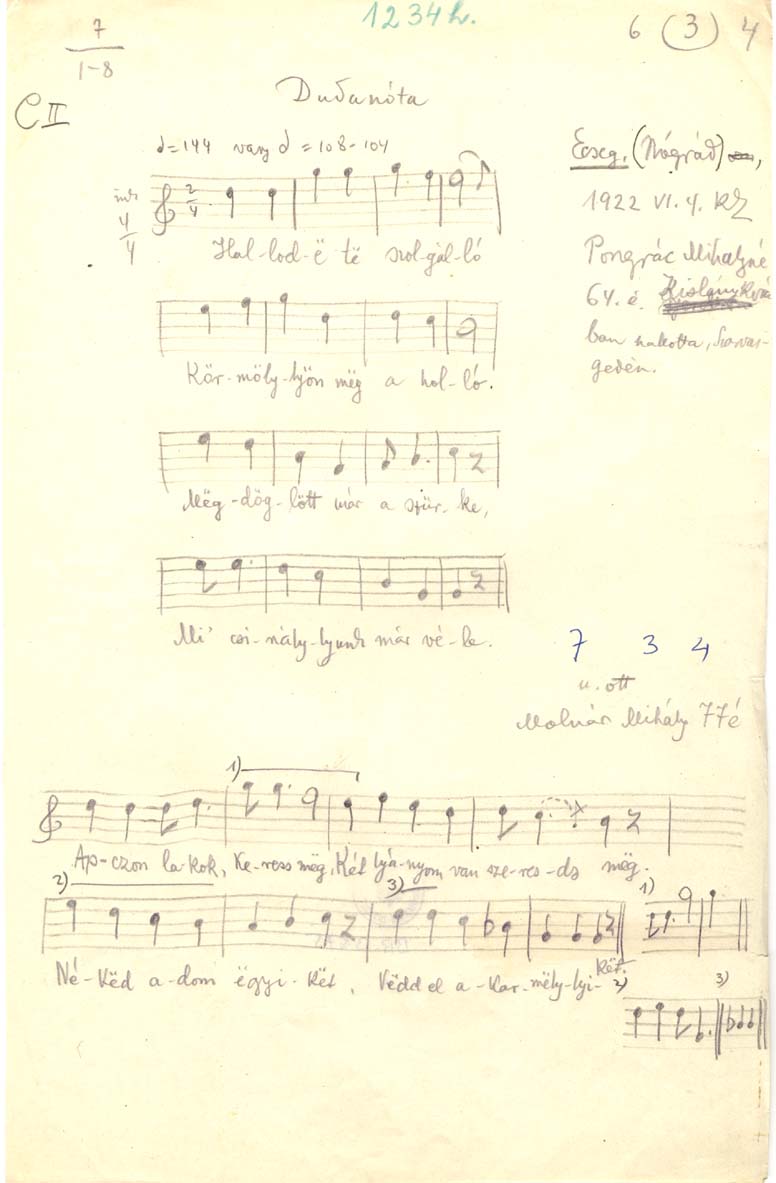 7
1-8
1234h.
6 (3) 4
C II
Dudanóta
♩=144 vagy 𝅗𝅥 =108-104
Ecseg. (Nógrád),
1922 VI. 4. KZ
Pongrác Mihályné
64. é.
ban lakott, Szarvas-
gedén.
4
4
2
4
Hal-lod-ë të szol-gál-ló
Kör-möly-lyön mëg a hol-ló.
Mëg-dög-lött már a szür-ke,
Mi' csi-nály-lyunk már vé-le.
7 3 4
u. ott
Molnár Mihály 77é
1)
Ap-czon la-kok, Ke-ress mëg, Két lyá-nyom van sze-resd mëg.
2) 3) 1)
Né-këd a-dom ëgyi-két, Vëdd el a-kar-mëly-lyi-két.
2) 3)